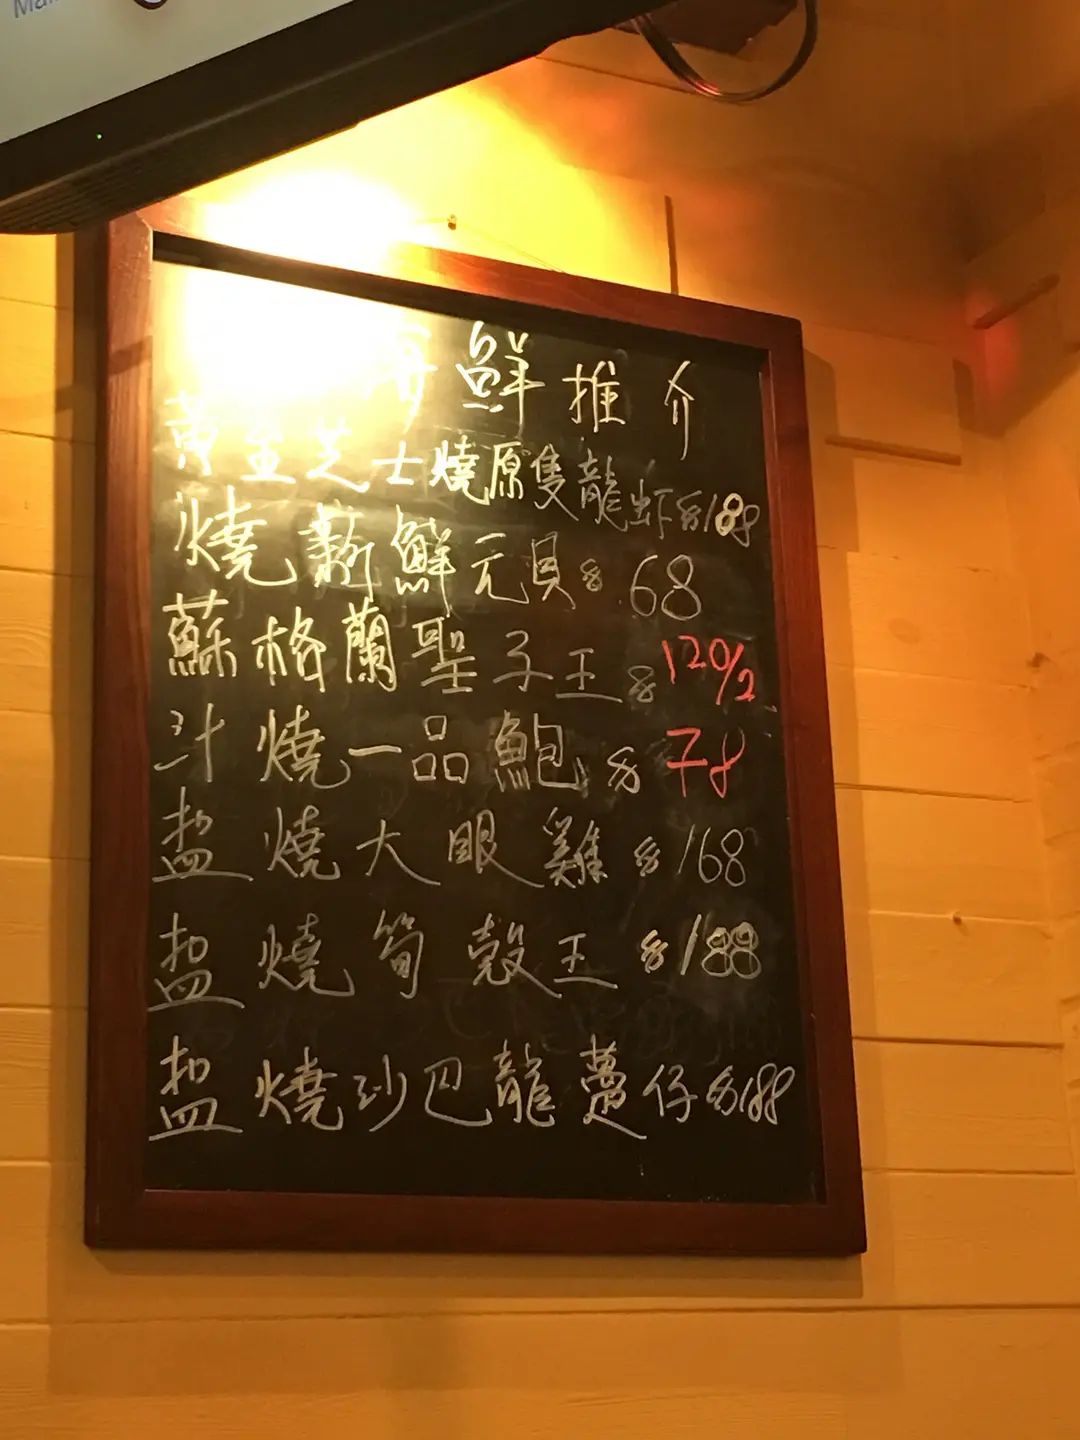 Mai
海鮮推介
黃金芝士燒原隻龍蝦$188
燒新鮮元貝$68
蘇格蘭聖子王$120/2
汁燒一品鮑$78
盐燒大眼雞$168
盐燒筍殼王$188
盐燒沙巴龍躉仔$188